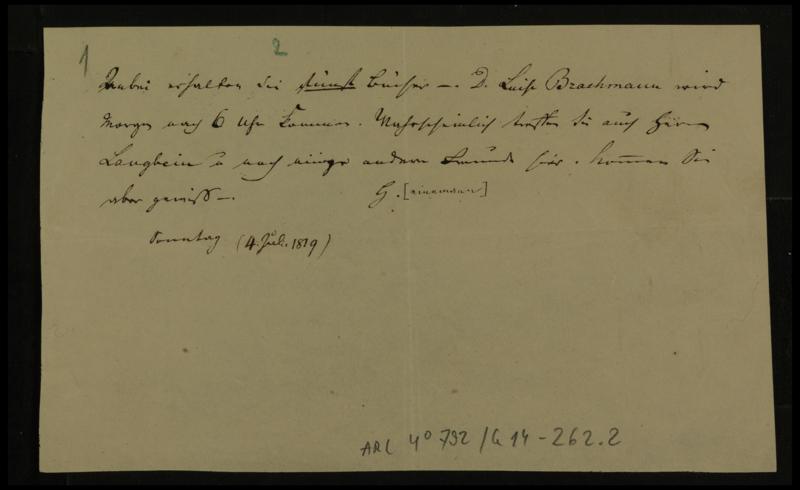 1 2
Anbei erhalten Sie fünf Bücher —. D. Luise Brachmann wird
Morgen nach 6 Uhr kommen. Wahrscheinlich treffen Sie auch Herrn
Langbein u noch einige andere Freunde hier. Kommen Sie
aber gewiß —.
H. [einemann]
Sonntag (4. Juli. 1819)
ARC 4° 792 / G 14 - 262.2